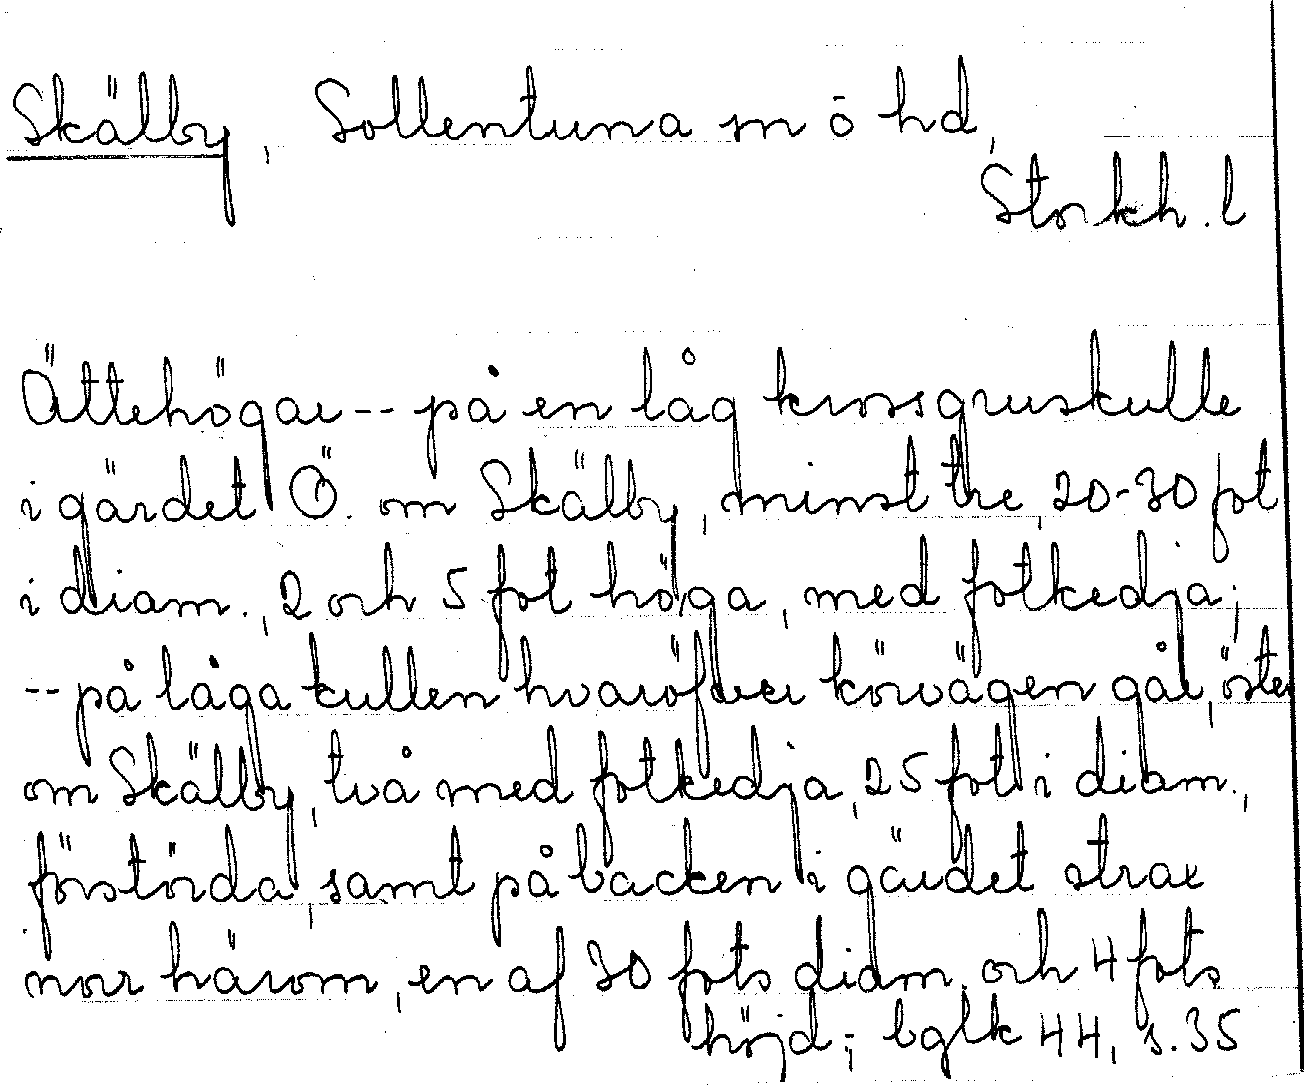 Skälby, Sollentuna sn ö hd,
Stockh. l
Ättehögar -- på en låg krossgruskulle
i gärdet Ö. om Skälby, minst tre, 20-30 fot
i diam., 2 och 5 fot höga, med fotkedja;
-- på låga kullen hvaröfver körvägen går, öster
om Skälby, två med fotkedja, 25 fot i diam.,
förstörda, samt på backen i gärdet strax
norr härom, en af 30 fots diam. och 4 fots
höjd; bglk 44, s. 35